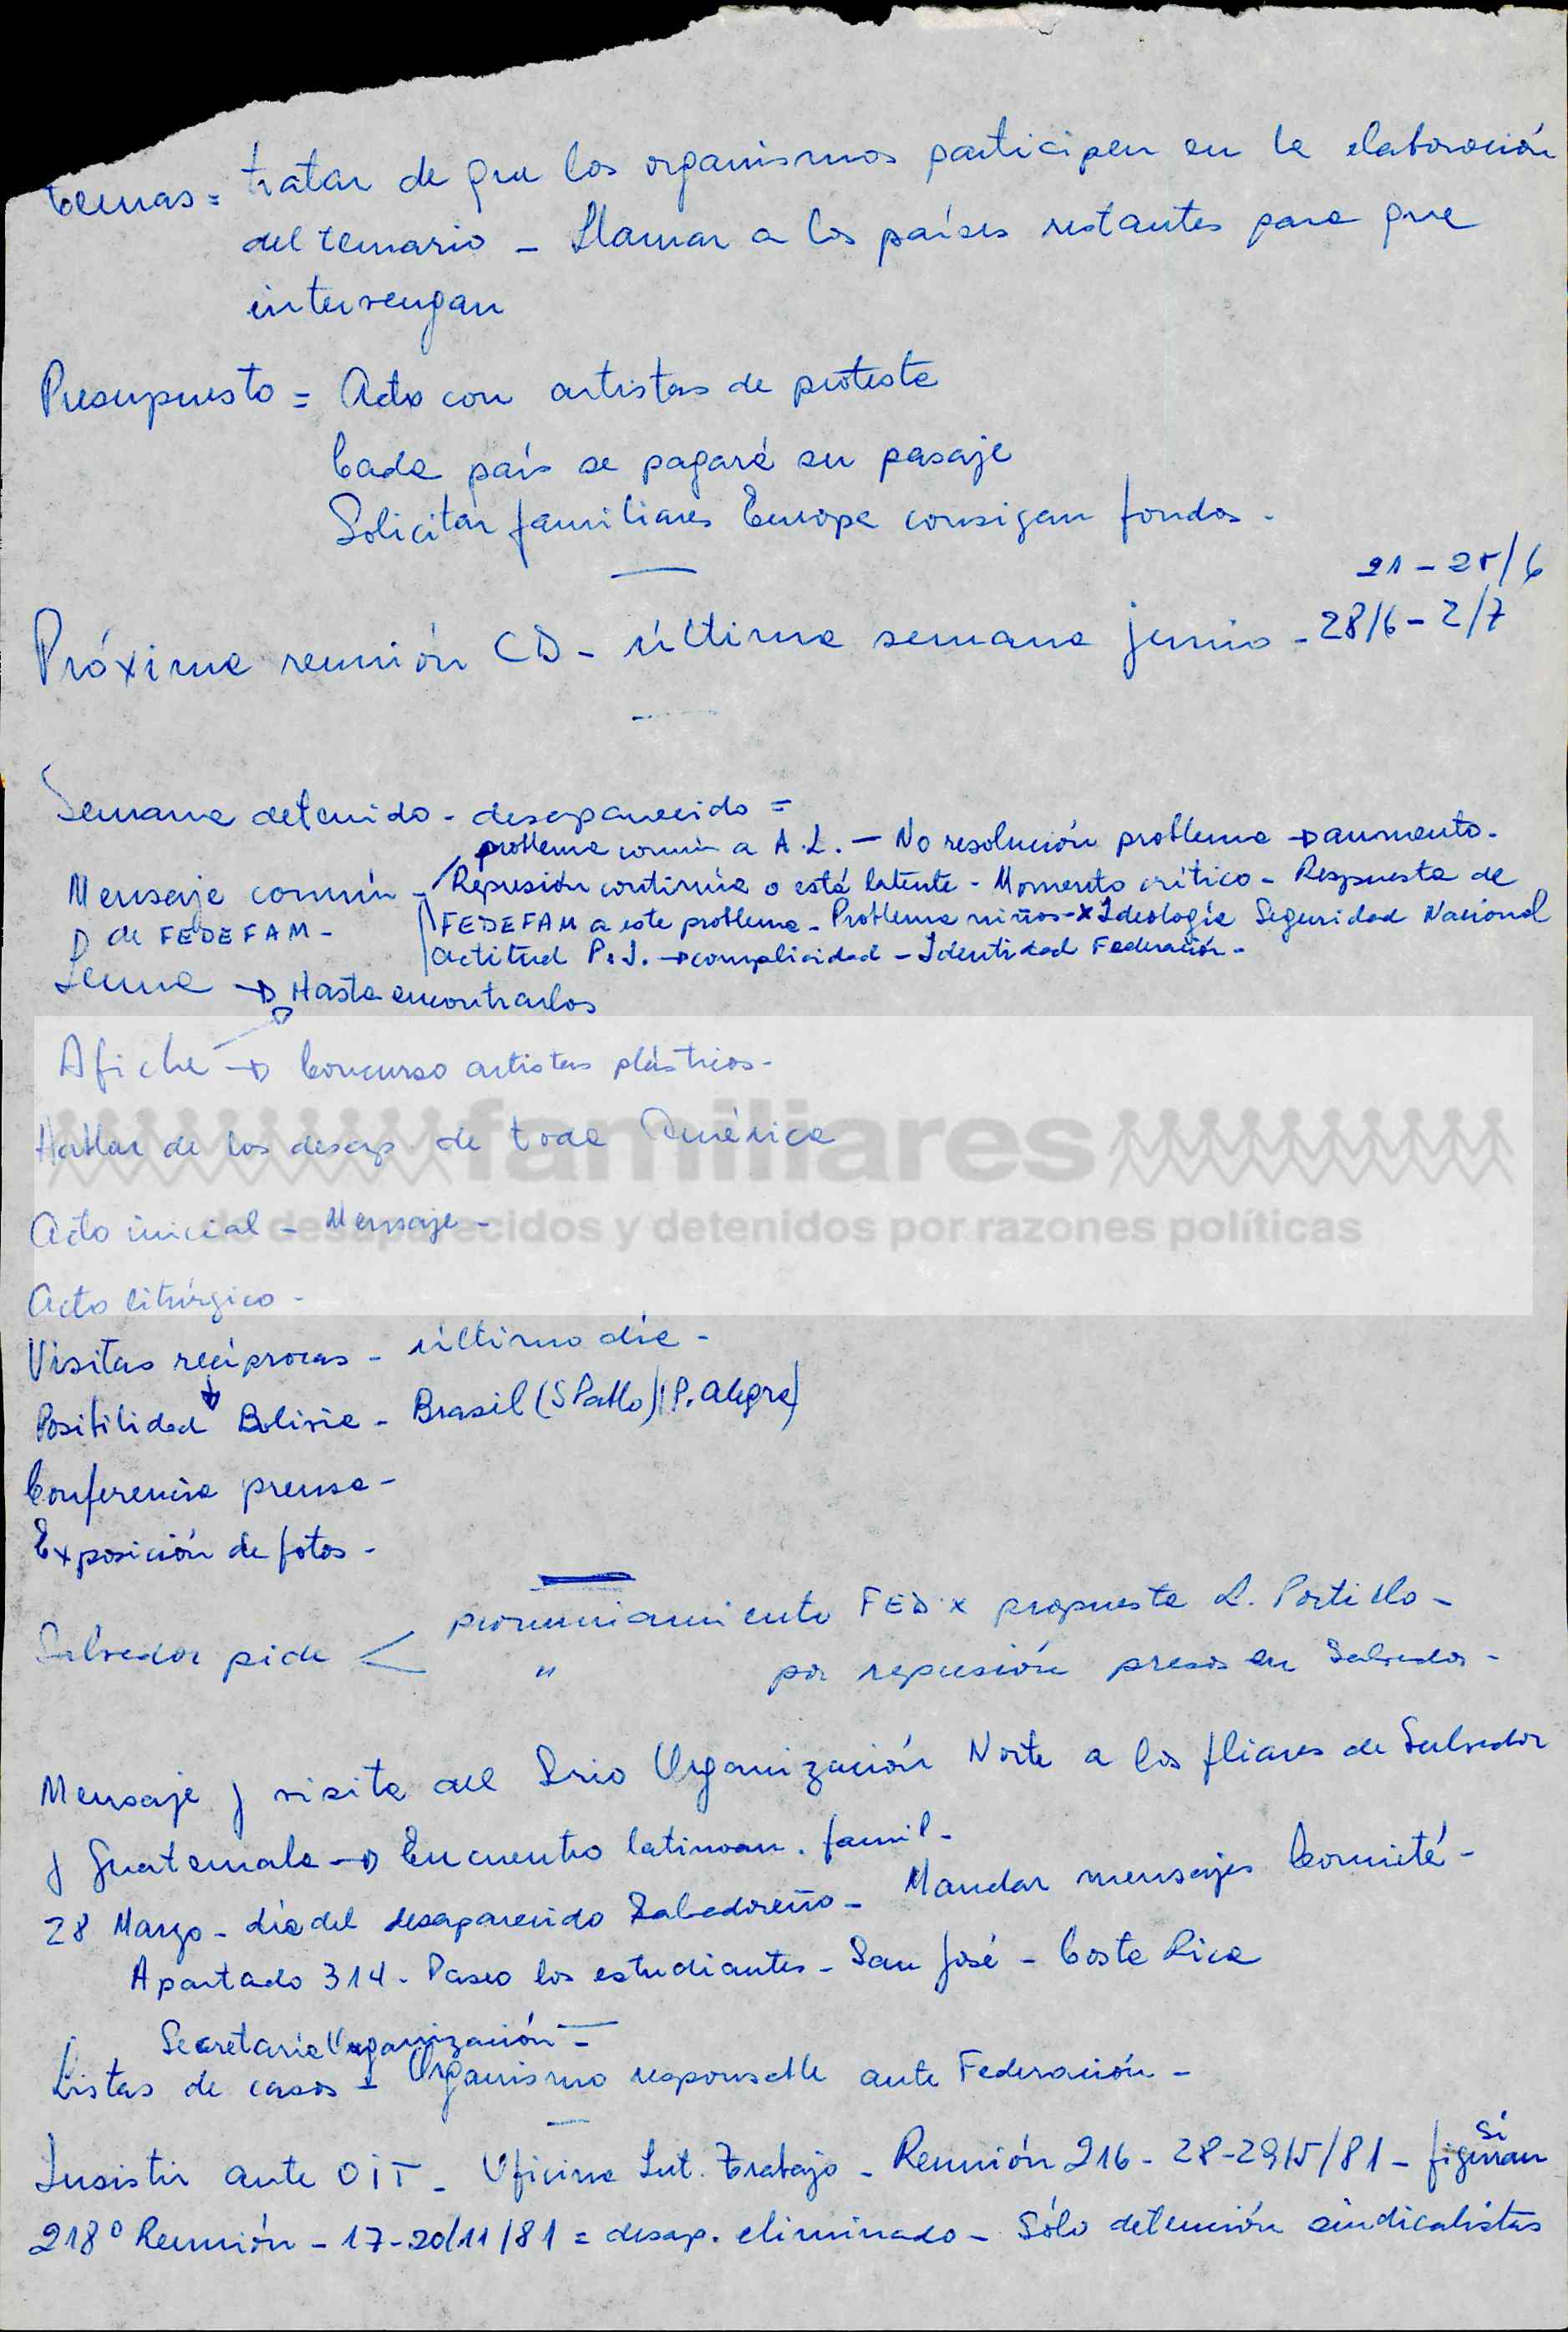 temas = tratar de que los organismos participen en la elaboración
del temario - Llamar a los países restantes para que
intervengan
Presupuesto = Acto con artistas de protesta
Cada país se pagará su pasaje
Solicitar familiares Europa consigan fondos -
21 - 25/6
Próxima reunión CD - última semana junio - 28/6 - 2/7
Semana detenido - desaparecido =
problema común a A.L. - No resolución problema → aumento -
Mensaje común - Represión continúa o está latente - Momento crítico - Respuesta de
de FEDEFAM - FEDEFAM a este problema - Problema niños - x Ideología Seguridad Nacional
actitud P.J. → complicidad - Identidad Federación -
Lema → Hasta encontrarlos
Afiche → Concurso artistas plásticos -
familiares
Hablar de los desap de toda América
Acto inicial - Mensaje -
de desaparecidos y detenidos por razones políticas
Acto litúrgico -
Visitas recíprocas - último día -
Posibilidad Bolivia - Brasil (S Pablo) (P. Alegre)
Conferencia prensa -
Exposición de fotos -
pronunciamiento FED x propuesta L. Portillo -
Salvador pide < " por represión presos en Salvador -
Mensaje y visita del Srio Organización Norte a los fliares de Salvador
y Guatemala → Encuentro latinoam. famil -
28 Marzo - día del desaparecido Salvadoreño - Mandar mensajes Comité -
Apartado 314 - Paseo los estudiantes - San José - Costa Rica
Secretaría Organización -
Listas de casos - Organismo responsable ante Federación -
sí
Insistir ante OIT - Oficina Int. Trabajo - Reunión 216 - 28-29/5/81 - figuran
218º Reunión - 17-20/11/81 = desap. eliminado - Sólo detención sindicalistas